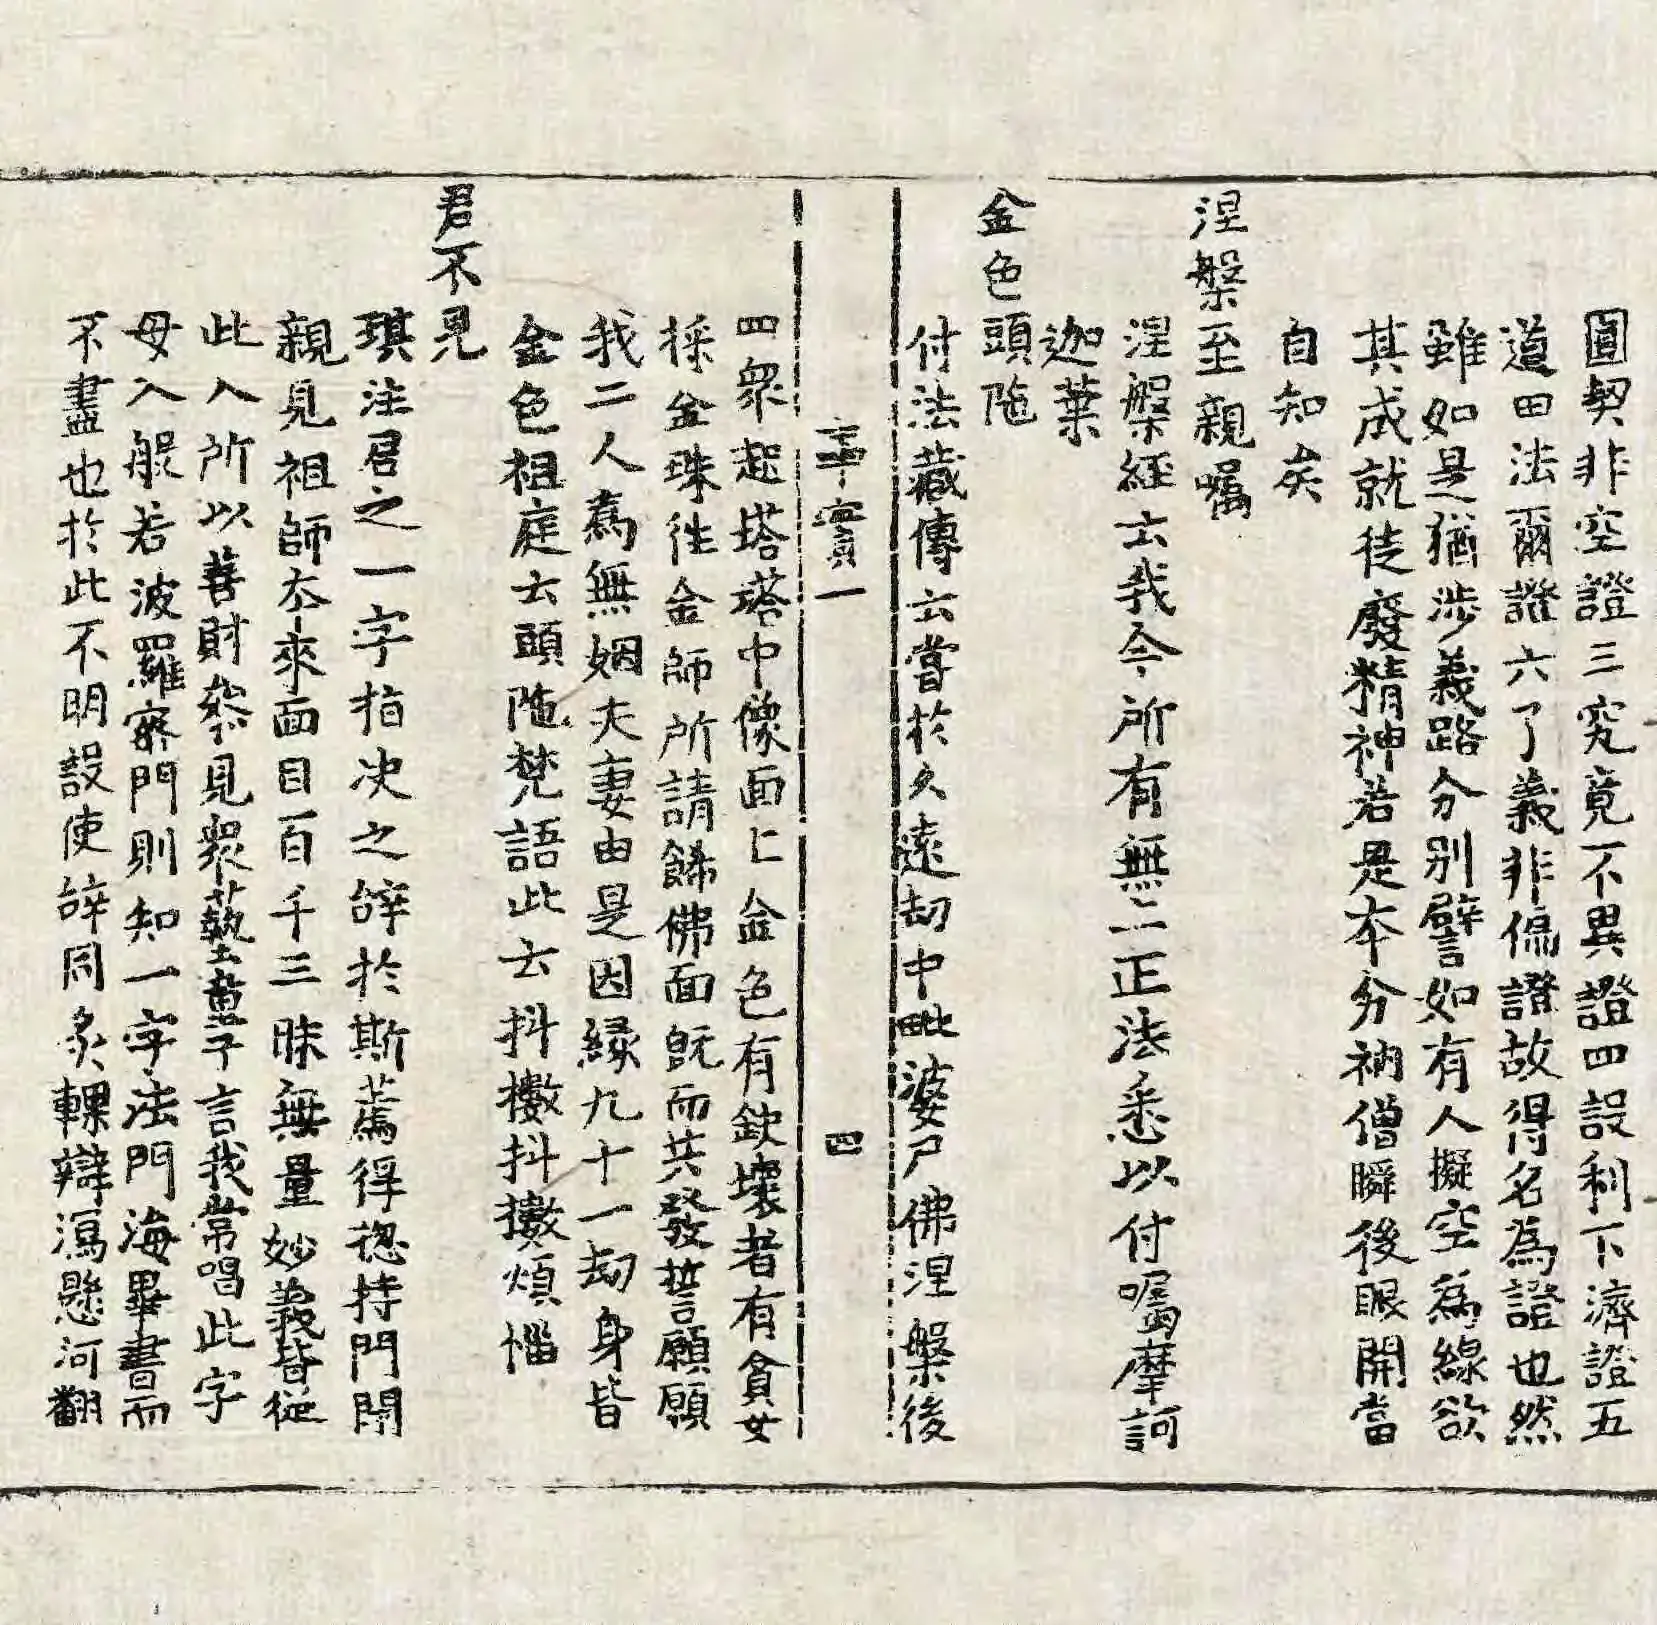 圓契非空證三究竟不異證四設利下濟證五
道田法爾證六了義非偏證故得名為證也然
雖如是猶涉義路分別譬如有人擬空為線欲
其成就徒廢精神若是本分衲僧瞬後眼開當
自知矣
涅槃至親囑
涅槃經云我今所有無上正法悉以付囑摩訶
迦葉
金色頭陁
付法藏傳云甞於久遠劫中毗婆尸佛涅槃後
事實一 四
四衆起塔塔中像面上金色有缺壞者有貪女
採金珠徃金師所請餙佛面旣而共發誓願願
我二人爲無姻夫妻由是因緣九十一劫身皆
金色祖庭云頭陁梵語此云抖擻抖擻煩惱
君不見
琪注君之一字指决之辝於斯薦得㧾持門開
親見祖師夲來面目百千三昧無量妙義皆從
此入所以善財叅見衆藝童子言我常唱此字
母入般若波羅宻門則知一字法門海畢書而
不盡也於此不明設使辝同炙輠辯瀉懸河翻